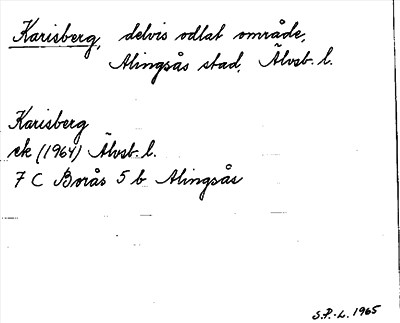 Karisberg, delvis odlat område,
Alingsås stad, Älvsb. l.
Karisberg
ek (1964) Älvsb. l.
7 C Borås 5 b Alingsås
S.P.-L. 1965